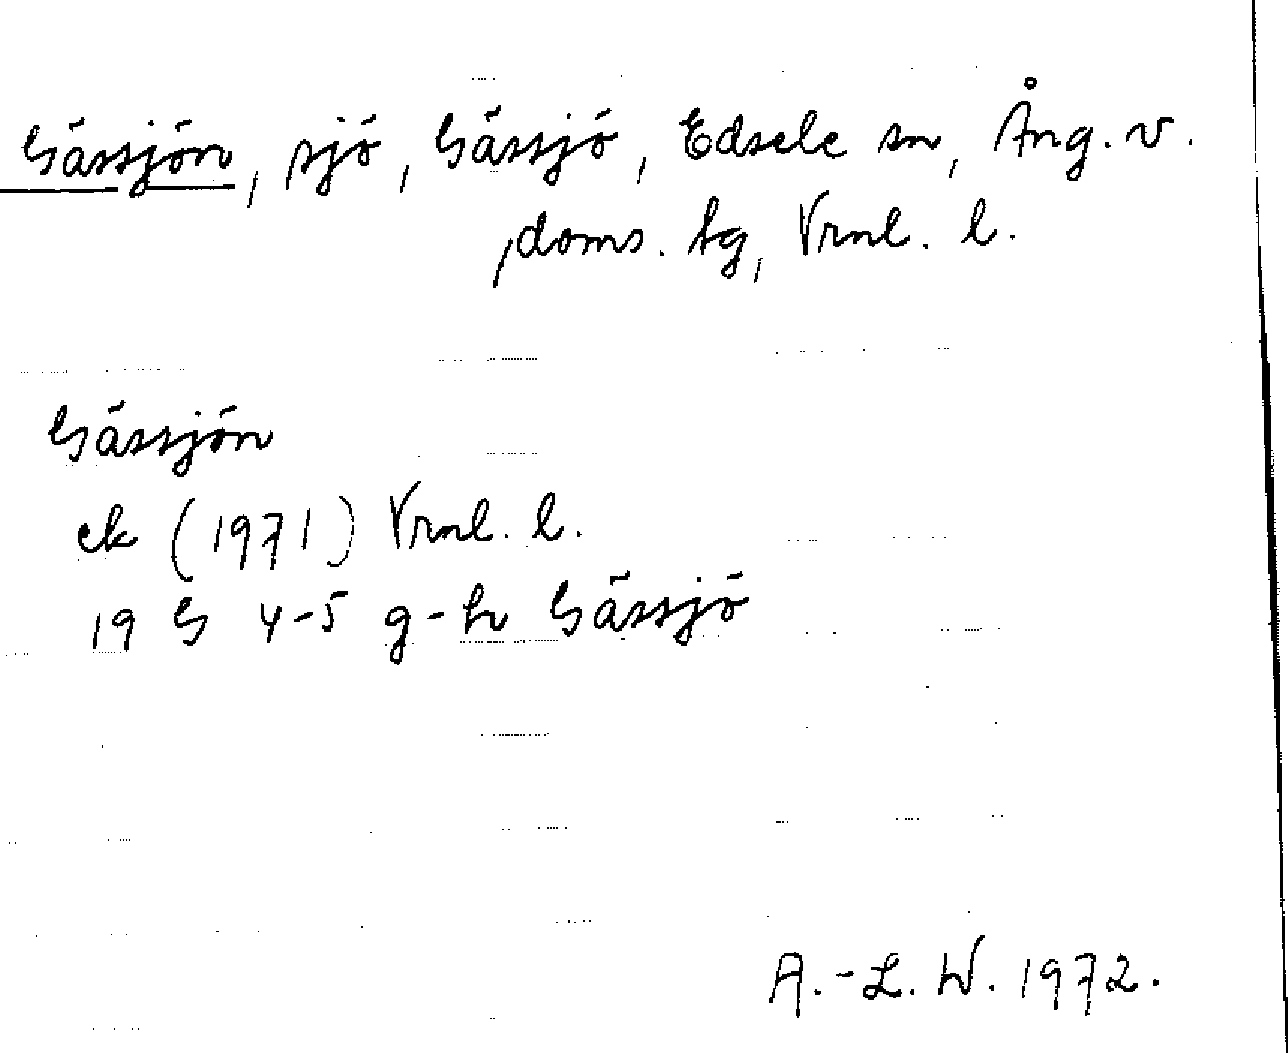 Gässjön, sjö, Gässjö, Edsele sn, Ång. v.
doms. tg, Vrnl. l.
Gässjön
ek (1971) Vrnl. l.
19 G 4-5 g-h Gässjö
A.-L. W. 1972.